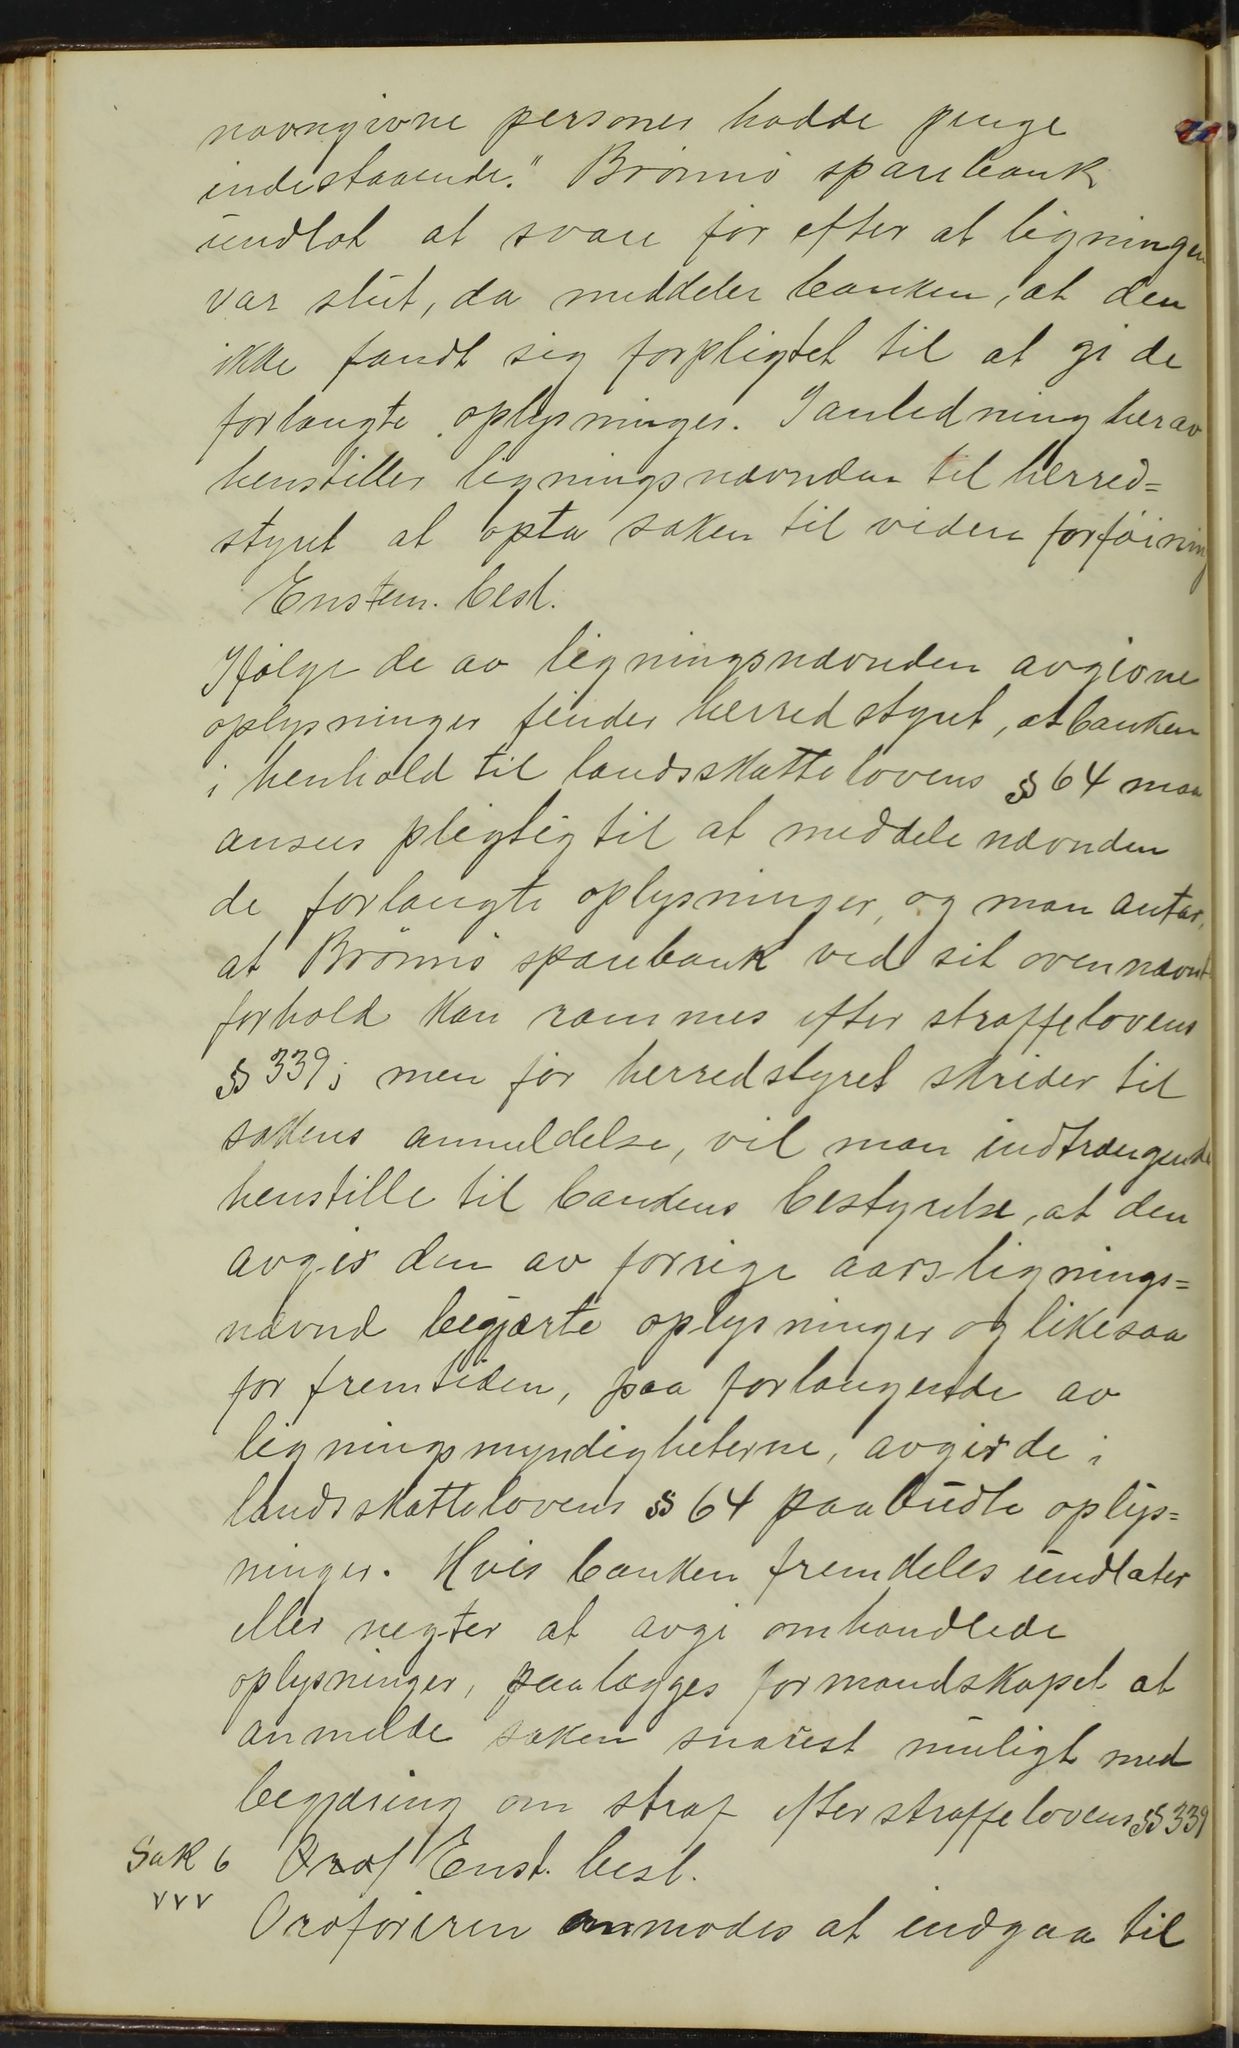 navngivne personer hadde penge
indestaaende." Brønnø sparebank
undlot at svare før efter at ligningen
var slut, da meddeler banken, at den
ikke fandt sig forpligtet til at gi de
forlangte oplysninger. I anledning herav
henstiller ligningsnævnden til herred=
styret at opta saken til videre forføining
Enstem. besl.
Ifølge de av ligningsnævnden avgivne
oplysninger finder herredstyret, at banken
i henhold til landsskattelovens § 64 maa
ansees pligtig til at meddele nævnden
de forlangte oplysninger, og man antar,
at Brønnø sparebank ved sit ovennævnte
forhold kan rammes efter straffelovens
§ 339; men før herredstyret skrider til
sakens anmeldelse, vil man indtrængende
henstille til bankens bestyrelse, at den
avgir den av forrige aars lignings=
nævnd begjærte oplysninger og likesaa
for fremtiden, paa forlangende av
ligningsmyndigheterne, avgir de i
landsskattelovens § 64 paabudte oplys=
ninger. Hvis banken fremdeles undlater
eller negter at avgi omhandlede
oplysninger, paalægges formandskapet at
anmelde saken snarest muligt med
begjæring om straf efter straffelovens § 339
Sak 6 Oraf Enst. besl.
vvv
Ordføreren anmodes at indgaa til